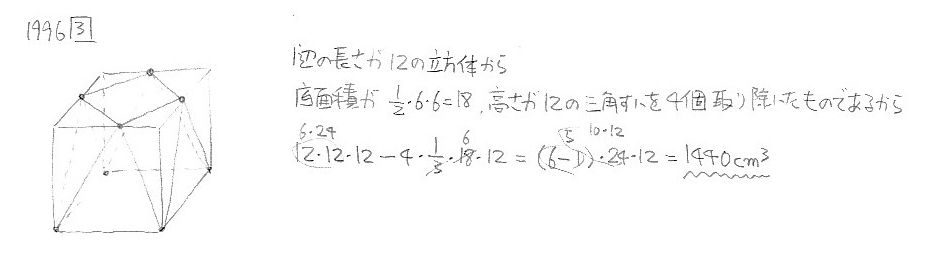 1996 3
1辺の長さが12の立方体から
底面積が 1/2・6・6=18, 高さが12の三角すいを4個取り除いたものであるから
6・24 6 5 10・12
12・12・12-4・1/3・18・12=(6-1)・24・12=1440cm³